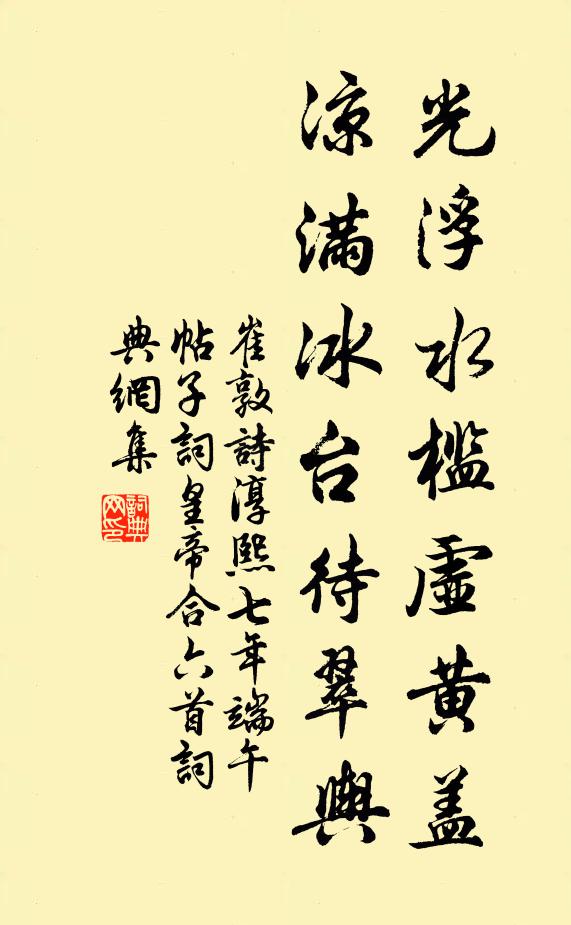 光浮水檻虛黃蓋
涼滿冰台待翠輿
崔敦詩淳熙七年端午
帖子詞皇帝合六首詞
典網集
詞典
网印